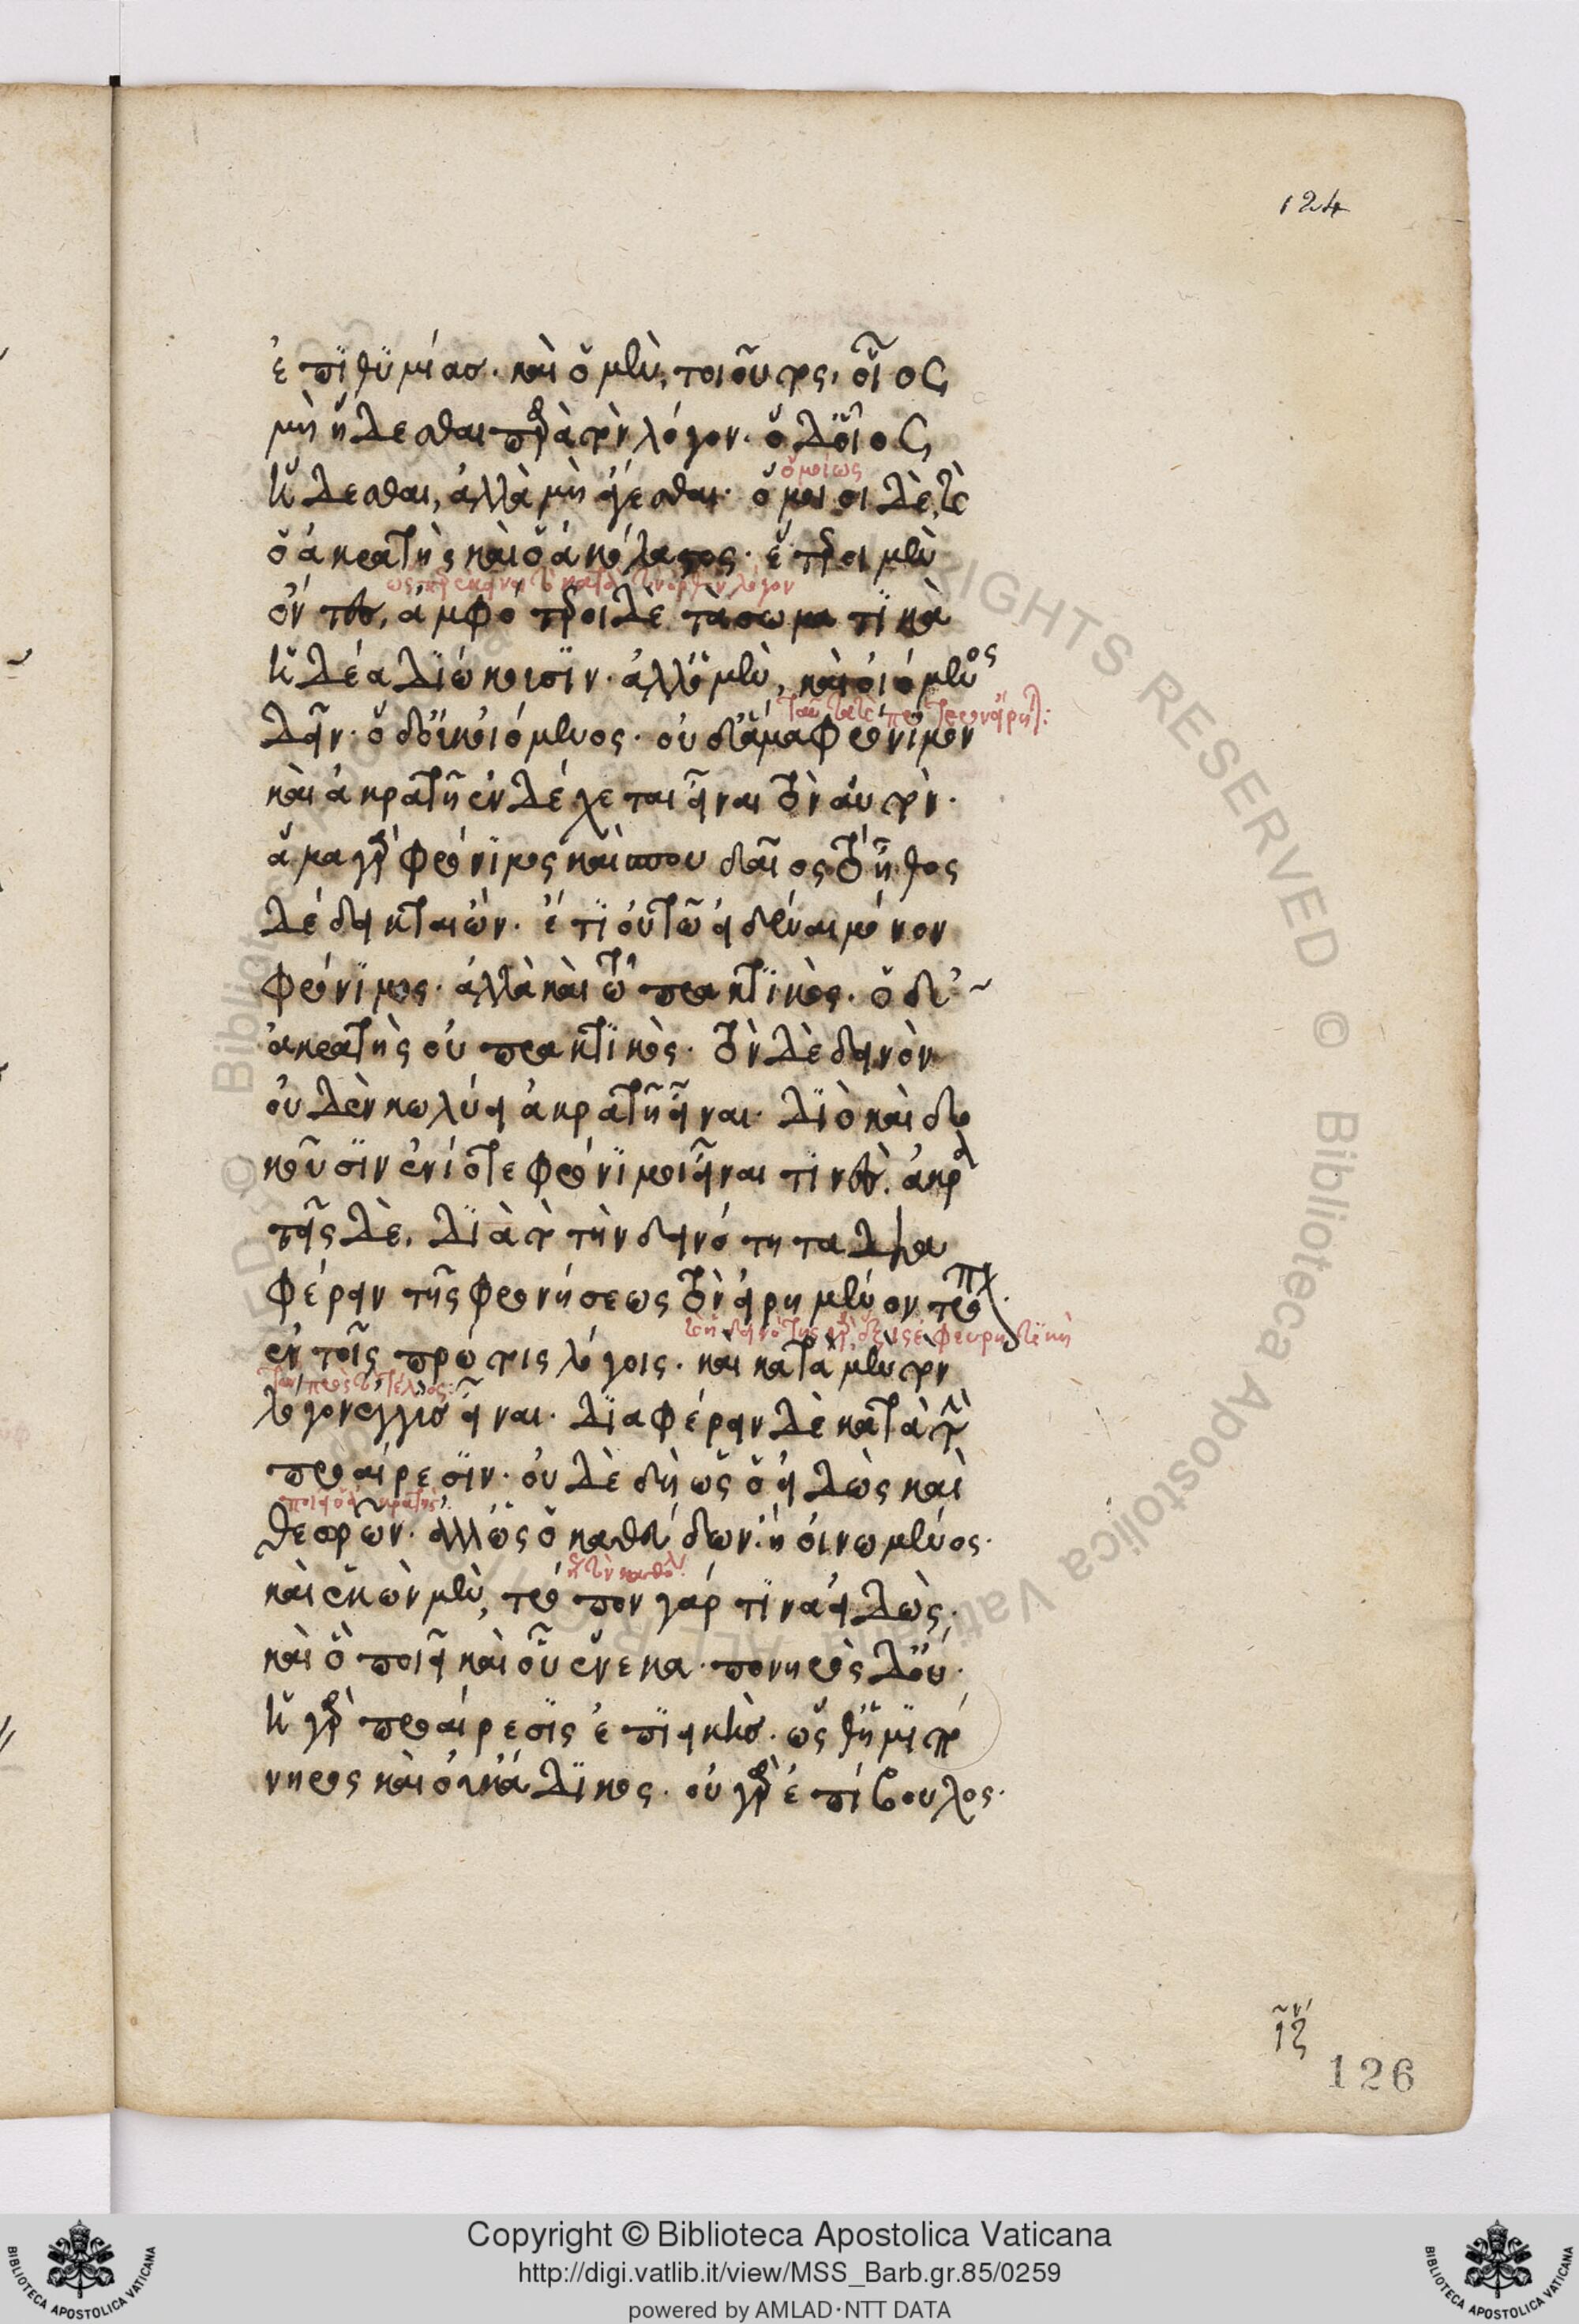 124
ἐπϊθϋμίας· καὶ ὁ μὲν, τοιοῦτος, οἷος
μὴ ἥδεσθαι παρὰ τὸν λόγον· ὁ δ' οἷος
ἥδεσθαι, ἀλλὰ μὴ ἄγεσθαι· ὅμοιοι δὲ,
ὁμοίως
ὁ ἀκρατὴς καὶ ὁ ἀκόλαστος· ἕτεροι μὲν
ὄντες, ἀμφότεροι δὲ τὰ σωματϊκὰ
ἡδέα δϊώκουσϊν· ἀλλ' ὁ μὲν, καὶ οἰόμενος
δεῖν· ὁ δ' οὐκ οἰόμενος· οὐδ' ἅμα φρόνϊμον
καὶ ἀκρατῆ ἐνδέχεται εἶναι τὸν αὐτὸν·
ἅμα γὰρ φρόνϊμος καὶ σπουδαῖος τὸ ἦθος
δέδεικται ὤν· ἔτϊ οὐ τῷ εἰδέναι μόνον
φρόνϊμος· ἀλλὰ καὶ τῷ πρακτϊκὸς· ὁ δ'
ἀκρατὴς οὐ πρακτϊκὸς· τὸν δὲ δεινὸν
οὐδὲν κωλύει ἀκρατῆ εἶναι· δϊὸ καὶ δο
κοῦσϊν ἐνίοτε φρόνϊμοι εἶναι τϊνὲς· ἀκρα
τεῖς δὲ, δϊὰ τὸ τὴν δεινότητα δϊα
φέρειν τῆς φρονήσεως τὸν εἰρημένον τρόπον
ἐν τοῖς πρώτοις λόγοις· καὶ κατὰ μὲν τὸν
λόγον ἐγγὺς εἶναι· δϊαφέρειν δὲ κατὰ τὴν
προαίρεσϊν· οὐδὲ δὴ ὡς ὁ εἰδὼς καὶ
θεωρῶν· ἀλλ' ὡς ὁ καθεύδων· ἢ οἰνωμένος·
καὶ ἑκὼν μὲν, τρόπον γάρ τϊνα εἰδὼς,
καὶ ὃ ποιεῖ καὶ οὗ ἕνεκα· πονηρὸς δ' οὔ·
ἡ γὰρ προαίρεσϊς ἐπϊεικὴς· ὥσθ' ἡμϊπό
νηρος καὶ οὐκ ἄδϊκος· οὐ γὰρ ἐπίβουλος·
126
RIGHTS RESERVED © Biblioteca Apostolica Vaticana
Copyright © Biblioteca Apostolica Vaticana
http://digi.vatlib.it/view/MSS_Barb.gr.85/0259
powered by AMLAD·NTT DATA
BIBLIOTECA APOSTOLICA VATICANA
BIBLIOTECA APOSTOLICA VATICANA